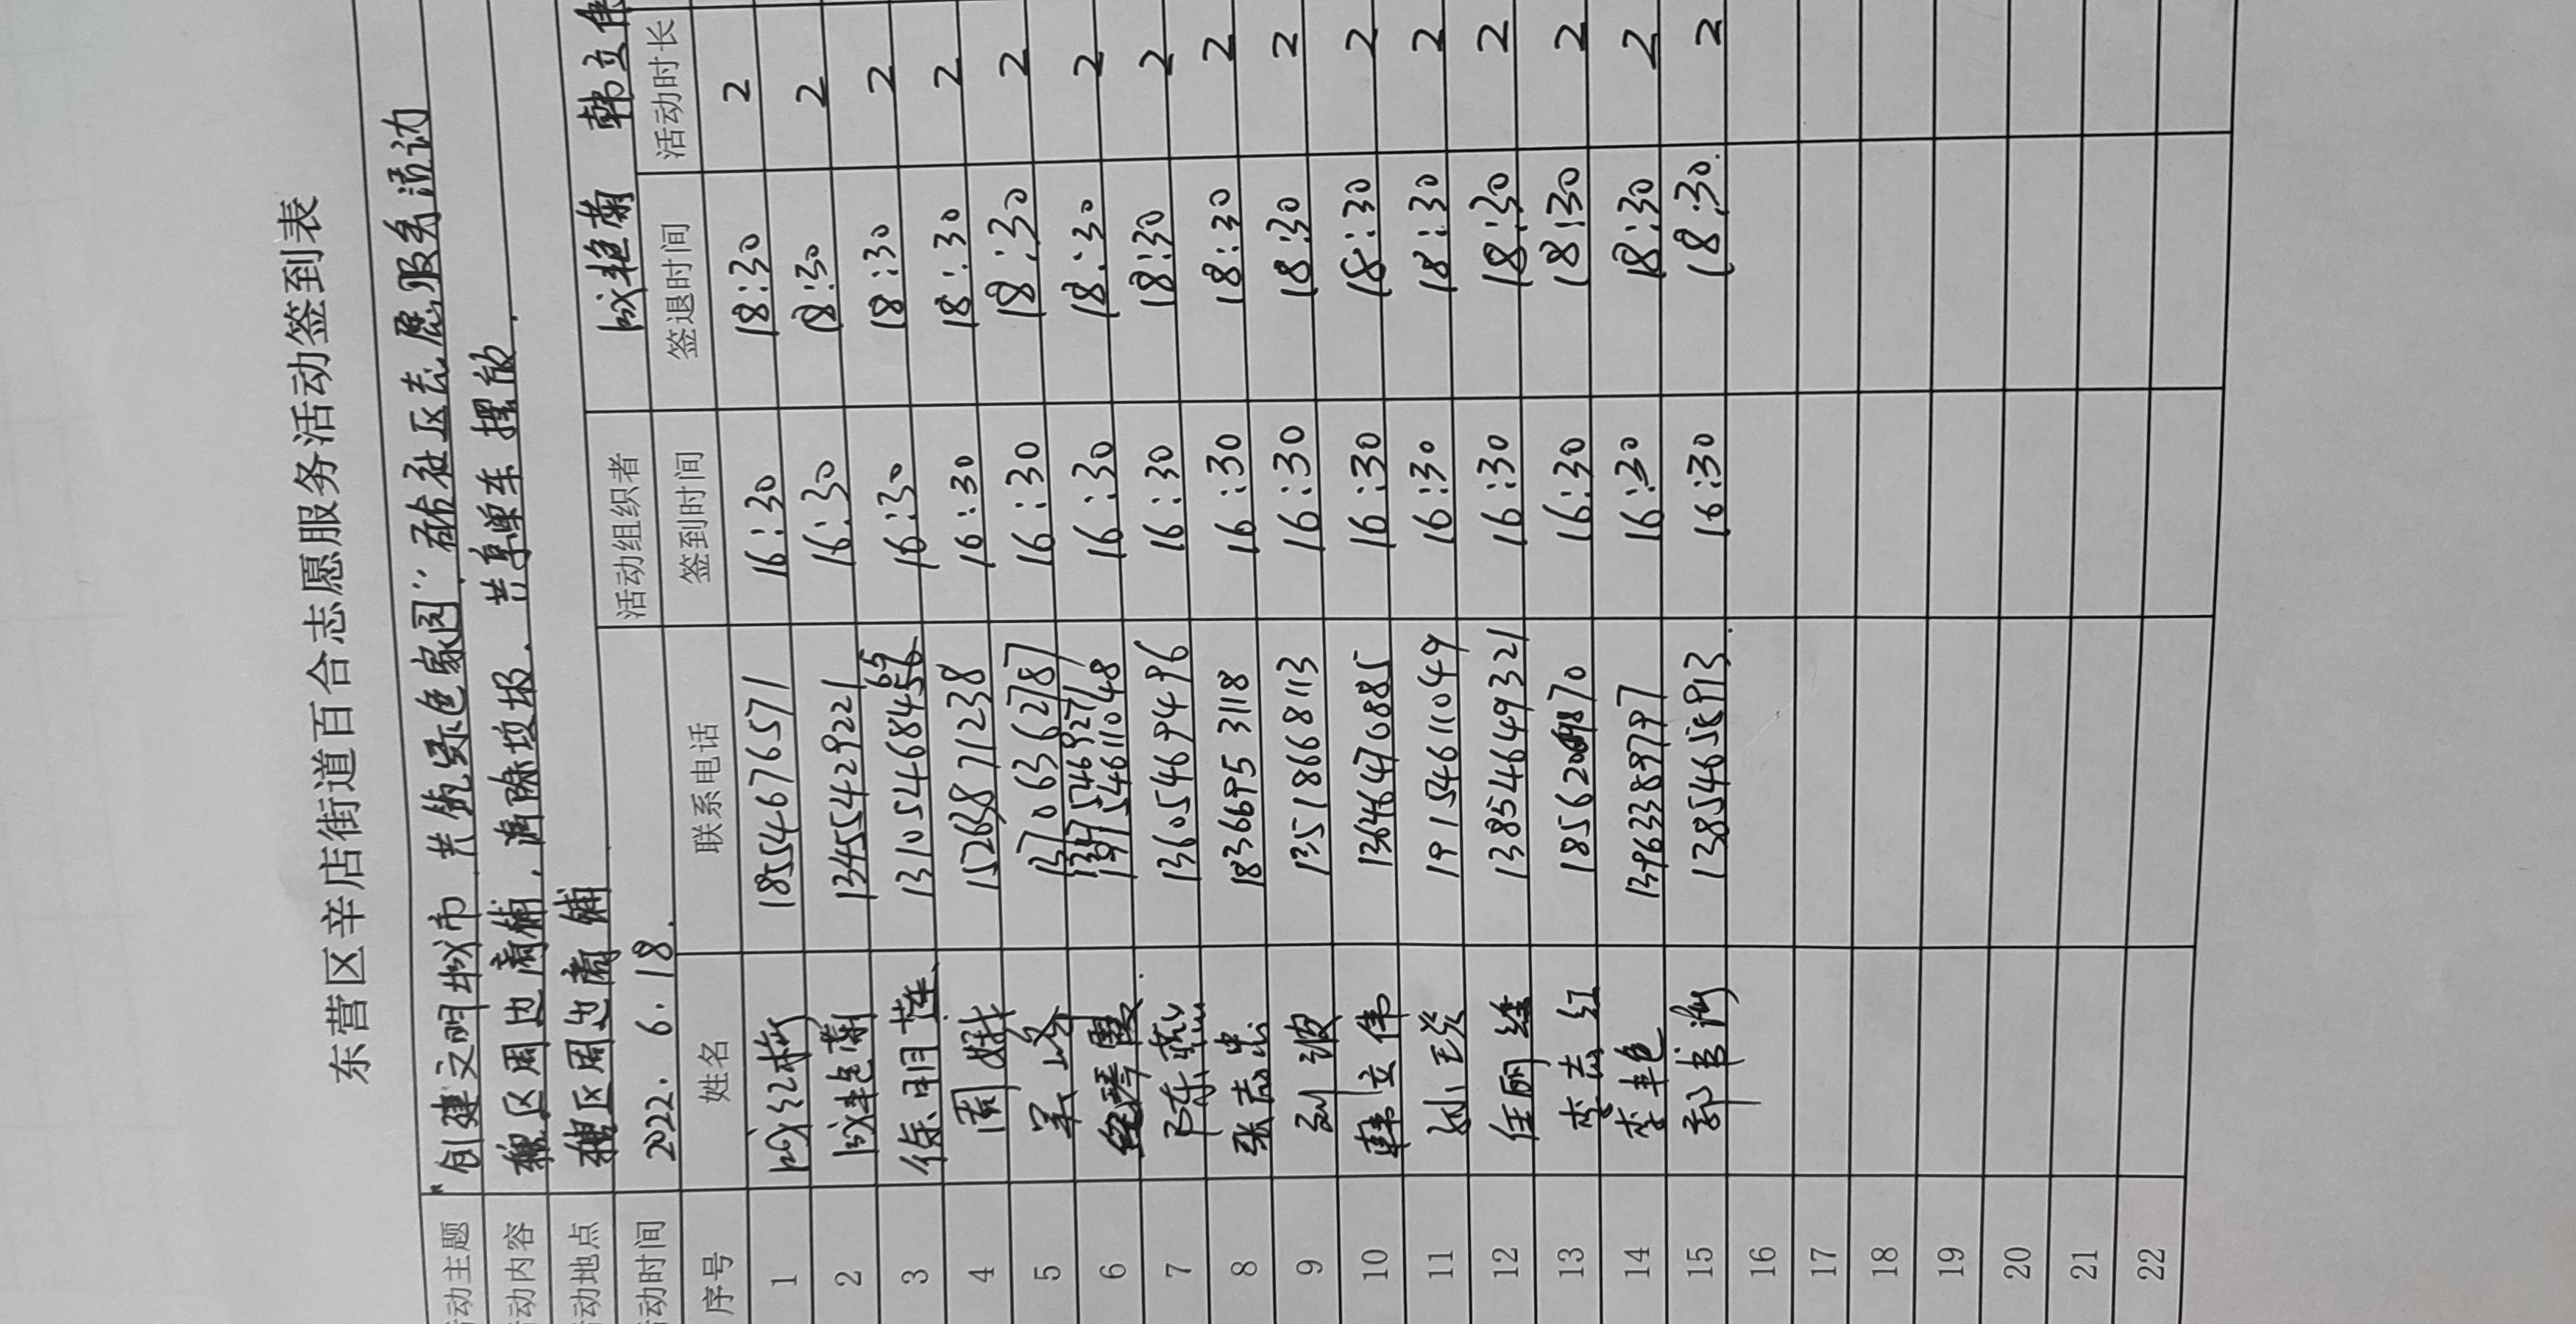 东营区辛店街道百合志愿服务活动签到表
动主题 "创建文明城市 共筑绿色家园" 社区志愿服务活动
动内容 辖区周边商铺,清除垃圾,共享单车摆放.
动地点 辖区周边商铺
动时间 2022.6.18. 活动组织者 成艳菊 韩立伟
序号 姓名 联系电话 签到时间 签退时间 活动时长
1 成红梅 18554676571 16:30 18:30 2
2 成艳菊 13455429221 16:30 18:30 2
3 徐明莲 16:30 18:30 2
4 周娥 15268711238 16:30 18:30 2
5 吴峰 13706362787 16:30 18:30 2
6 16:30 18:30 2
7 陈燕 13605469496 16:30 18:30 2
8 张志忠 18366953118 16:30 18:30 2
9 刘波 13518668113 16:30 18:30 2
10 韩立伟 13646470885 16:30 18:30 2
11 孙玉 19154611049 16:30 18:30 2
12 任丽娃 13854649321 16:30 18:30 2
13 李志红 16:30 18:30 2
14 李艳 13963389797 16:30 18:30 2
15 郭书 13854658913. 16:30 18:30. 2
16
17
18
19
20
21
22